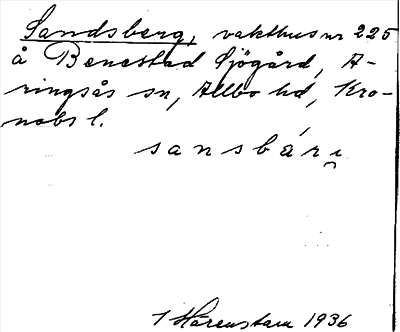 Sandsberg, vakthus nr 225
å Benestad Sjögård, A-
ringsås sn, Allbo hd, Kro-
nobs l.
sansbári̯
I Hårenstam 1936